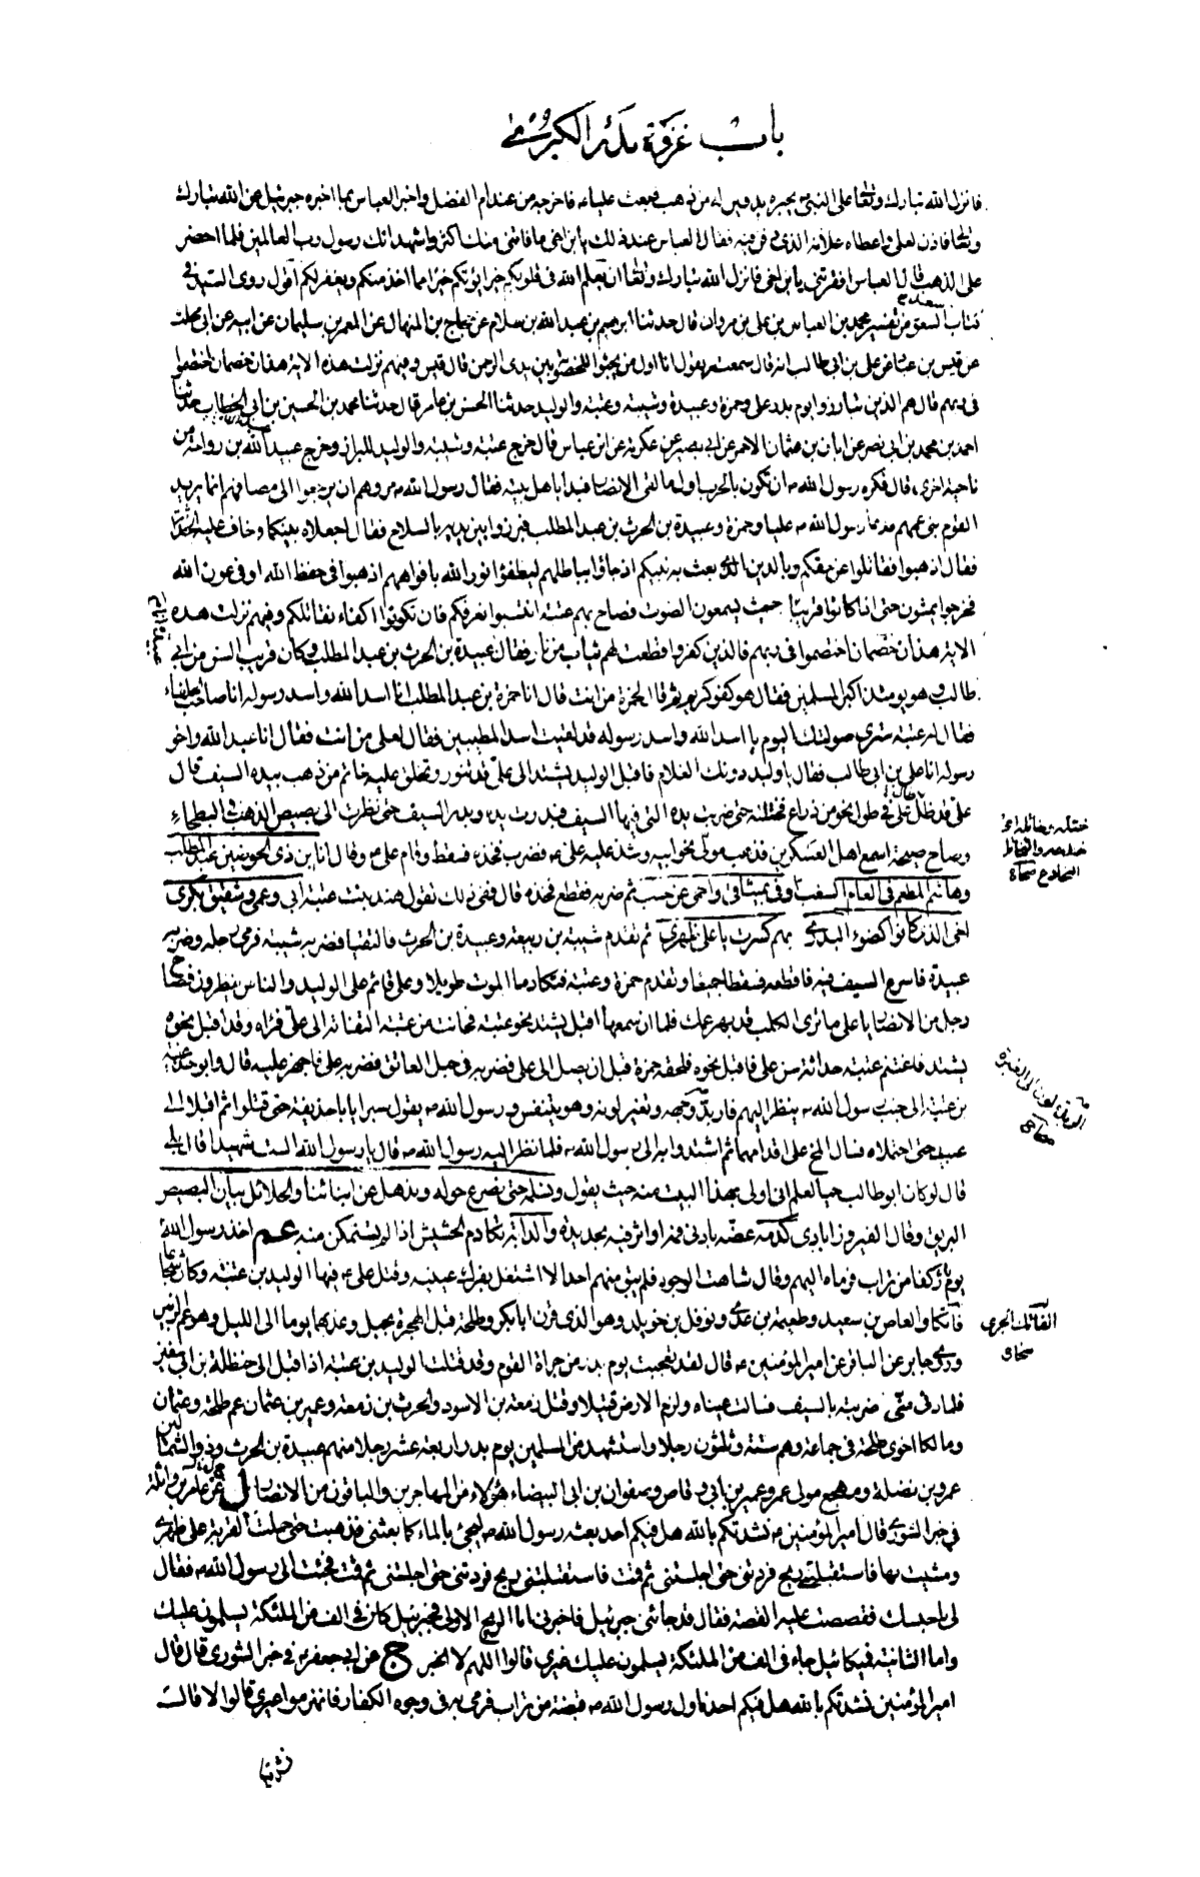 باب غزوة بدر الكبرى
فانزل الله تبارك وتعالى على النبى يخبره بذلك من ذهب فبعث عليا ع فاخرجه من عند ام الفضل واخبر العباس بما اخبره جبرئيل عن الله تبارك
وتعالى فاذن لعلى واعطاه علامة الذى دفن فيه فقال العباس عند ذلك يا بن اخى ما فاتنى منك اكثر واشهد انك رسول رب العالمين فلما احضر
على الذهب قال العباس افقرتنى يا بن اخى فانزل الله تبارك وتعالى ان يعلم الله فى قلوبكم خيرا يؤتكم خيرا مما اخذ منكم ويغفر لكم اقول روى السيد فى
كتاب سعد من تفسير محمد بن العباس بن على بن مروان قال حدثنا ابرهيم بن عبد الله بن سلام عن حجاج بن المنهال عن المعمر بن سليمان عن ابيه عن ابى مجلز
عن قيس بن عباد عن على بن ابى طالب انه قال سمعته يقول انا اول من يجثوا للخصومة بين يدى الرحمن قال قيس وفيهم نزلت هذه الاية هذان خصمان اختصموا
فى ربهم قال هم الذين تبارزوا يوم بدر على وحمزة وعبيدة وشيبة وعتبة والوليد حدثنا الحسن بن عامر قال حدثنا محمد بن الحسين بن ابى الخطاب حدثنا
احمد بن محمد بن ابى نصر عن ابان بن عثمان الاحمر عن ابى بصير عن عكرمة عن ابن عباس قال خرج عتبة وشيبة والوليد للبراز وخرج عبيد الله بن رواحة من
ناحية اخرى قال فكره رسول الله ص ان تكون بالحرب اول ما لقى الانصار فبدا باهل بيته فقال رسول الله ص مروهم ان يرجعوا الى مصافهم انما يريد
القوم بنى عمهم فدعا رسول الله ص عليا وحمزة وعبيدة بن الحرث بن عبد المطلب فبرزوا بين يديه بالسلاح فقال اجعلاه بينكما وخاف عليه الحداثة
فقال اذهبوا فقاتلوا عن حقكم وبالدين الذى بعث به نبيكم اذ جاؤا بباطلهم ليطفؤا نور الله بافواههم اذهبوا فى حفظ الله او فى عون الله
فخرجوا يمشون حتى اذا كانوا قريبا حيث يسمعون الصوت فصاح بهم عتبة انتسبوا نعرفكم فان تكونوا اكفاء نقاتلكم وفيهم نزلت هذه
الاية هذان خصمان اختصموا فى ربهم فالذين كفروا قطعت لهم ثياب من نار فقال عبيدة انا عبيدة بن الحرث بن عبد المطلب وكان قريب السن من ابى
طالب وهو يومئذ اكبر المسلمين فقال هو كفو كريم ثم قال لحمزة من انت قال انا حمزة بن عبد المطلب انا اسد الله واسد رسوله انا صاحب الحلفاء
فقال له عتبة سترى صولتك اليوم يا اسد الله واسد رسوله قد لقيت اسد المطيبين فقال لعلى من انت فقال انا عبد الله واخو
رسوله انا على بن ابى طالب فقال يا وليد دونك الغلام فاقبل الوليد يشتد الى على قد تنور وتخلق عليه خاتم من ذهب بيده السيف قال
على قد ظل على فى طول نحو من ذراع فختلته حتى ضربت يده التى فيها السيف فبدرت يده وبدر السيف حتى نظرت الى بصيص الذهب فى البطحاء
وصاح صيحة اسمع اهل العسكرين فذهب مولى نحو ابيه وشد عليه على ع فضرب فخذه فسقط وقام على ع وقال انا بن ذى الحوضين عبد المطلب
وهاشم المطعم فى العام السغب اوفى بميثاقى واحمى عن حسب ثم ضربه فقطع فخذه قال ففى ذلك تقول هند بنت عتبة ابى وعمى وشقيق بكرى
اخى الذى كانوا كضوء البدر بهم كسرت يا على ظهرى ثم تقدم شيبة بن ربيعة وعبيدة بن الحرث فالتقيا فضربه شيبة فرمى رجله وضربه
عبيدة فاسرع السيف فيه فاقطعه فسقطا جميعا وتقدم حمزة وعتبة فتكادما الموت طويلا وعلى قائم على الوليد والناس ينظرون فصاح
رجل من الانصار يا على ما ترى الكلب قد بهر عمك فلما ان سمعها اقبل يشتد نحو عتبة فحانت من عتبة التفاتة الى على فراه وقد اقبل نحوه
يشتد فاغتنم عتبة حداثة سن على فاقبل نحوه فلحقه حمزة قبل ان يصل الى على فضربه فى حبل العاتق فضربه على فاجهز عليه قال وابو حذيفة
بن عتبة الى جنب رسول الله ص ينظر اليهم فاربد وجهه وتغير لونه وهو يتنفس ورسول الله ص يقول صبرا يا با حذيفة حتى قتلوا ثم اقبلا الى
عبيدة حتى احتملاه فسال المخ على اقدامهما ثم اشتدوا به الى رسول الله ص فلما نظر اليه رسول الله ص قال يا رسول الله الست شهيدا قال بلى
قال لو كان ابو طالب حيا لعلم انى اولى بهذا البيت منه حيث يقول ونسلمه حتى نصرع حوله ونذهل عن ابنائنا والحلائل بيان البصيص
البريق وقال الفيروزابادى كدمه عضه بادنى فمه او اثر فيه بحديدة والدابة تكادم الحشيش اذا لم يستمكن منه عم اخذ رسول الله
يوم بدر كفا من تراب فرماه اليهم وقال شاهت الوجوه فلم يبق منهم احد الا اشتغل بفرك عينيه وقتل على ع فيها الوليد بن عتبة وكان شجاعا
فاتكا والعاص بن سعيد وطعيمة بن عدى ونوفل بن خويلد وهو الذى قرن ابا بكر وطلحة قبل الهجرة بحبل وعذبهما يوما الى الليل وهو عم الزبير
وروى جابر عن الباقر عن امير المؤمنين ع قال لقد تعجبت يوم بدر من جراة القوم وقد قتلت الوليد بن عتبة اذ اقبل الى حنظلة بن ابى سفين
فلما دنى منى ضربته بالسيف فسالت عيناه ولزم الارض قتيلا وقتل زمعة بن الاسود والحرث بن زمعة وعمير بن عثمان عم طلحة وعثمان
ومالكا اخوى طلحة فى جماعة وهم ستة وثلثون رجلا واستشهد من المسلمين يوم بدر اربعة عشر رجلا منهم عبيدة بن الحرث وذو الشمالين
عمرو بن نضلة ومهجع مولى عمر وعمير بن ابى وقاص وصفوان بن ابى البيضاء هؤلاء من المهاجرين والباقون من الانصار ل عن عامر بن واثلة
فى خبر الشورى قال امير المؤمنين ع نشدتكم بالله هل فيكم احد بعثه رسول الله ص ليجئ بالماء كما بعثنى فذهبت حتى حملت القربة على ظهرى
ومشيت بها فاستقبلتنى ريح فردتنى حتى اجلستنى ثم قمت فاستقبلتنى ريح فردتنى حتى اجلستنى ثم قمت فجئت الى رسول الله ص فقال
لى ما حبسك فقصصت عليه القصة فقال قد جائنى جبرئيل فاخبرنى اما الريح الاولى فجبرئيل كان فى الف من الملئكة يسلمون عليك
واما الثانية فميكائيل جاء فى الف من الملئكة يسلمون عليك غيرى قالوا اللهم لا الخبر ج عن ابى جعفر ع فى خبر الشورى قال قال
امير المؤمنين نشدتكم بالله هل فيكم احد ناول رسول الله ص قبضة من تراب فرمى به فى وجوه الكفار فانهزموا غيرى قالوا لا قال
نشدتكم
ختله وخاتله اى
خدعه والتخاتل
التخادع صحاح
الربدة لون الى الغبرة
صحاح
الفاتك الجرى
صحاح